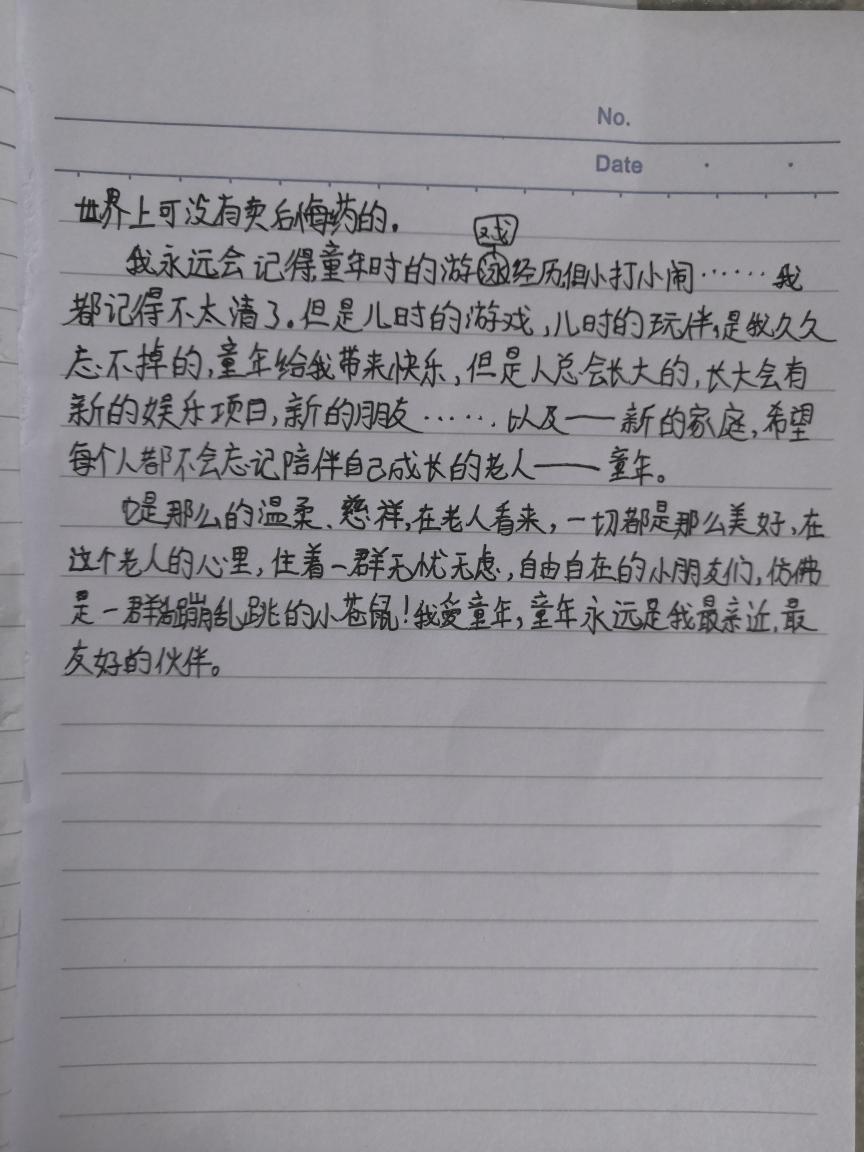 No.
Date
世界上可没有卖后悔药的。
戏
我永远会记得童年时的游泳经历,但小打小闹……我
都记得不太清了。但是儿时的游戏,儿时的玩伴,是我久久
忘不掉的,童年给我带来快乐,但是人总会长大的,长大会有
新的娱乐项目,新的朋友……以及——新的家庭,希望
每个人都不会忘记陪伴自己成长的老人——童年。
它是那么的温柔、慈祥,在老人看来,一切都是那么美好,在
这个老人的心里,住着一群无忧无虑,自由自在的小朋友们,仿佛
是一群活蹦乱跳的小苍鼠!我爱童年,童年永远是我最亲近、最
友好的伙伴。